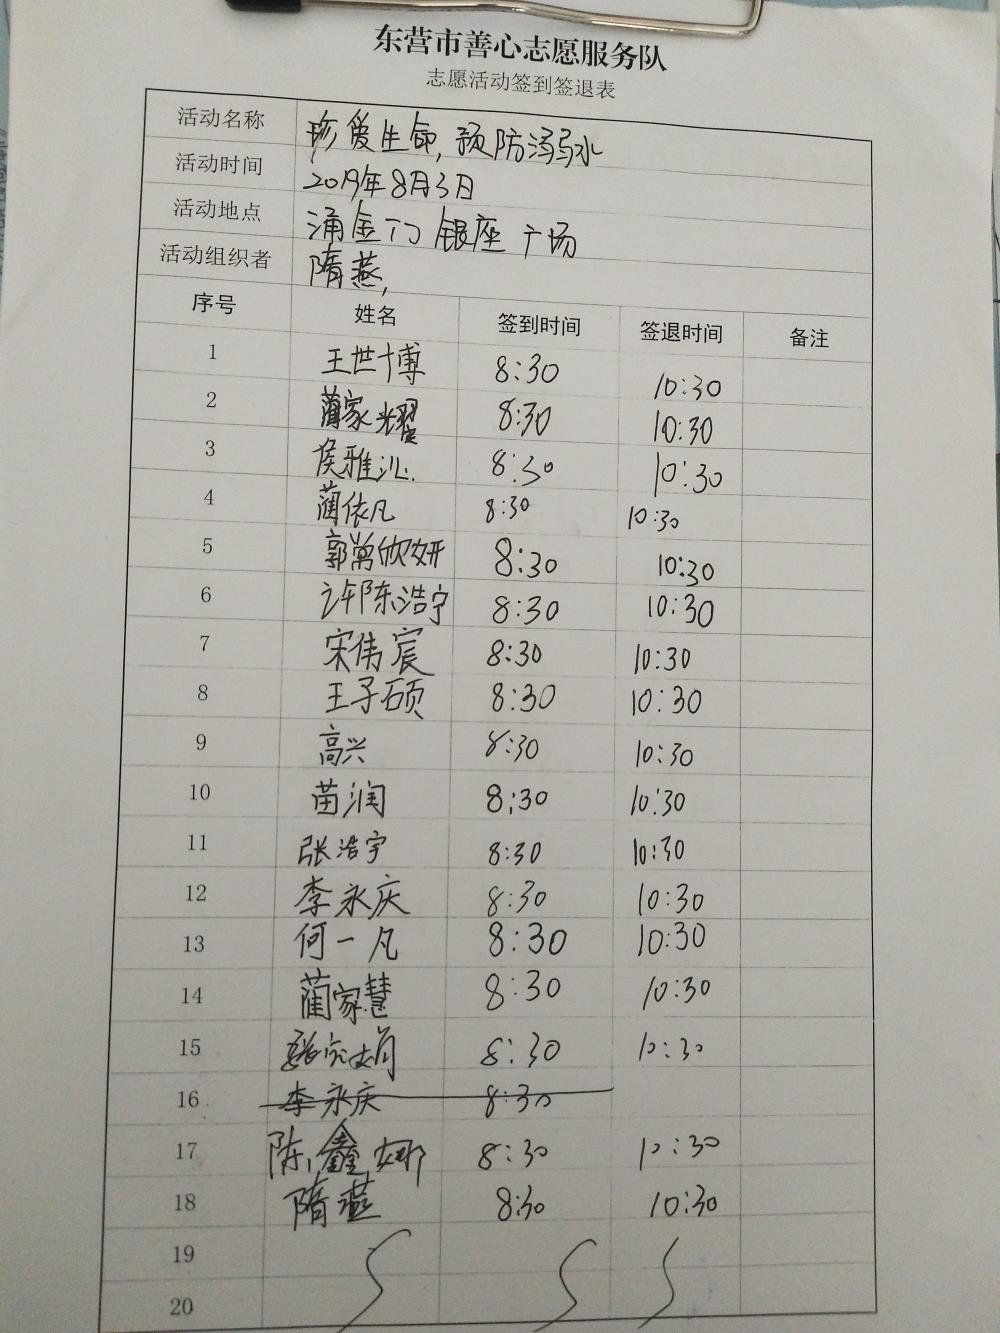 东营市善心志愿服务队
志愿活动签到签退表
活动名称 珍爱生命,预防溺水
活动时间 2019年8月3日
活动地点 涌金门 银座广场
活动组织者 隋燕,
序号 姓名 签到时间 签退时间 备注
1 王世博 8:30 10:30
2 蔺家耀 8:30 10:30
3 侯雅沁 8:30 10:30
4 蔺依凡 8:30 10:30
5 郭尝欣妍 8:30 10:30
6 许陈浩宁 8:30 10:30
7 宋伟宸 8:30 10:30
8 王子硕 8:30 10:30
9 高兴 8:30 10:30
10 苗润 8:30 10:30
11 张浩宇 8:30 10:30
12 李永庆 8:30 10:30
13 何一凡 8:30 10:30
14 蔺家慧 8:30 10:30
15 8:30 10:30
16 李永庆 8:30
17 陈鑫娜 8:30 10:30
18 隋燕 8:30 10:30
19
20